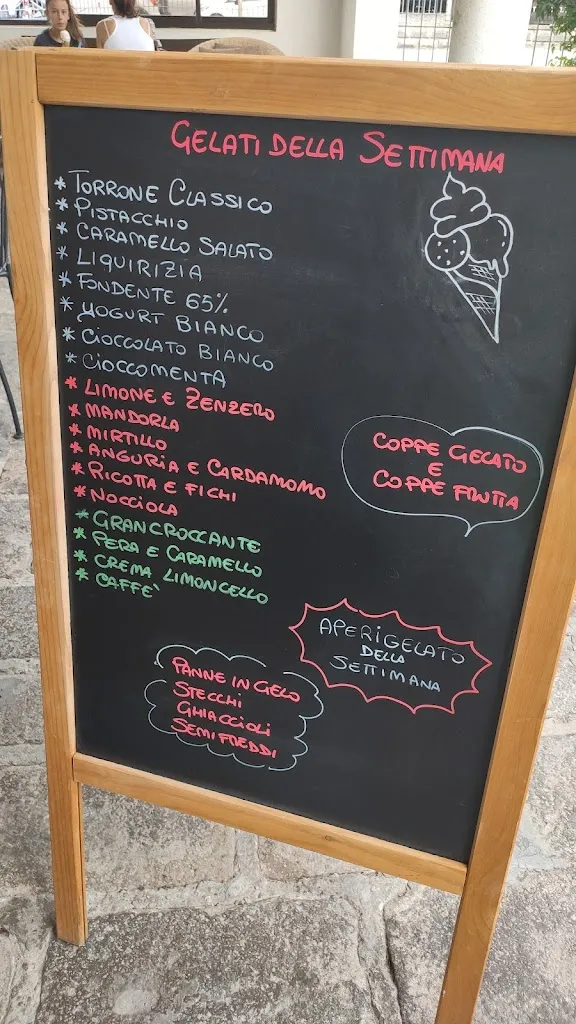 GELATI DELLA SETTIMANA
* TORRONE CLASSICO
* PISTACCHIO
* CARAMELLO SALATO
* LIQUIRIZIA
* FONDENTE 65%
* YOGURT BIANCO
* CIOCCOLATO BIANCO
* CIOCCOMENTA
* LIMONE E ZENZERO
* MANDORLA
* MIRTILLO
* ANGURIA E CARDAMOMO
* RICOTTA E FICHI
* NOCCIOLA
* GRANCROCCANTE
* PERA E CARAMELLO
* CREMA LIMONCELLO
* CAFFE'
COPPE GELATO
E
COPPE FRUTTA
APERIGELATO
DELLA
SETTIMANA
PANNE IN GELO
STECCHI
GHIACCIOLI
SEMIFREDDI